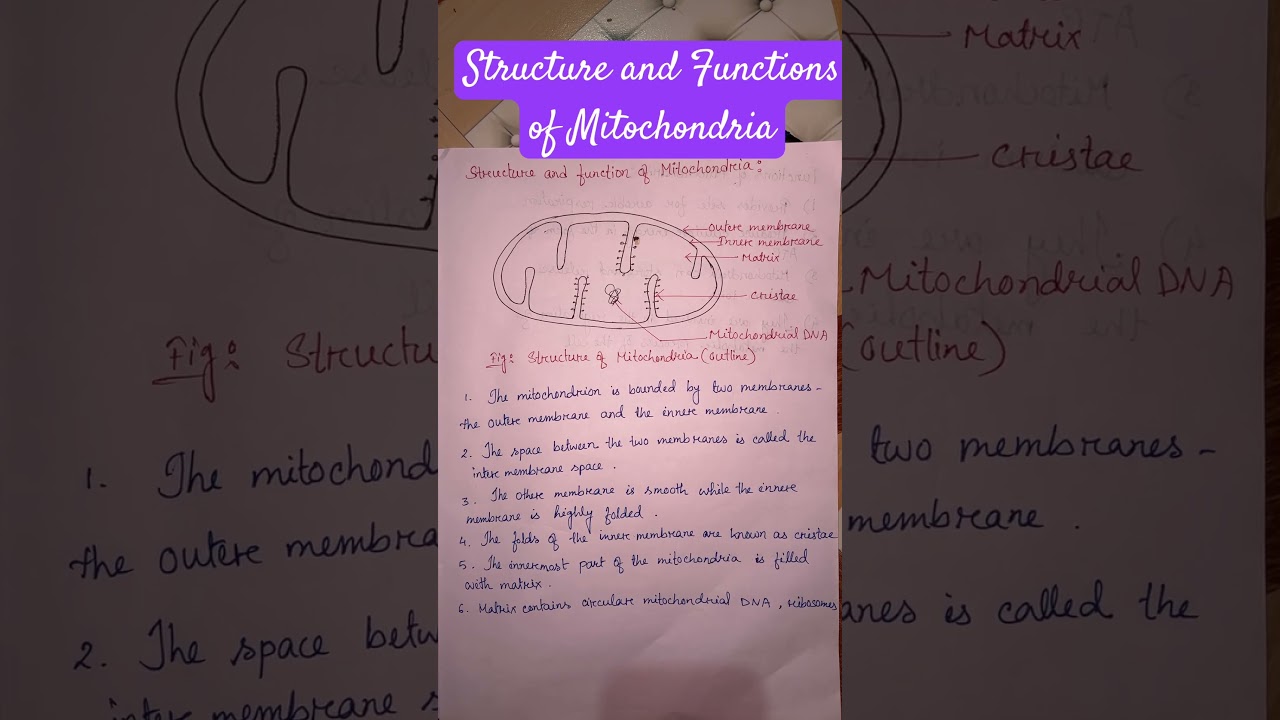 Structure and Functions
of Mitochondria
Structure and function of Mitochondria:
Outer membrane
Inner membrane
Matrix
Cristae
Mitochondrial DNA
Fig: Structure of Mitochondria (outline)
1. The mitochondrion is bounded by two membranes -
the outer membrane and the inner membrane.
2. The space between the two membranes is called the
inter membrane space.
3. The other membrane is smooth while the inner
membrane is highly folded.
4. The folds of the inner membrane are known as cristae
5. The innermost part of the mitochondria is filled
with matrix.
6. Matrix contains circular mitochondrial DNA, ribosomes
Matrix
Cristae
Mitochondrial DNA
Fig: Struct
(outline)
1. The mitochond
two membranes -
the outer membra
membrane.
2. The space betw
anes is called the
inter membrane s